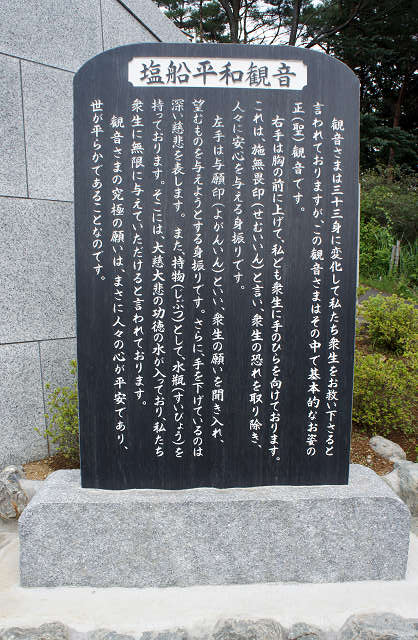 塩船平和観音
観音さまは三十三身に変化して私たち衆生をお救い下さると
言われておりますが、この観音さまはその中で基本的なお姿の
正(聖)観音です。
右手は胸の前に上げて、私ども衆生に手のひらを向けております。
これは、施無畏印(せむいいん)と言い、衆生の恐れを取り除き、
人々に安心を与える身振りです。
左手は与願印(よがんいん)といい、衆生の願いを聞き入れ、
望むものを与えようとする身振りです。さらに、手を下げているのは
深い慈悲を表します。また、持物(じぶつ)として、水瓶(すいびょう)を
持っております。そこには、大慈大悲の功徳の水が入っており、私たち
衆生に無限に与えていただけると言われております。
観音さまの究極の願いは、まさに人々の心が平安であり、
世が平らかであることなのです。